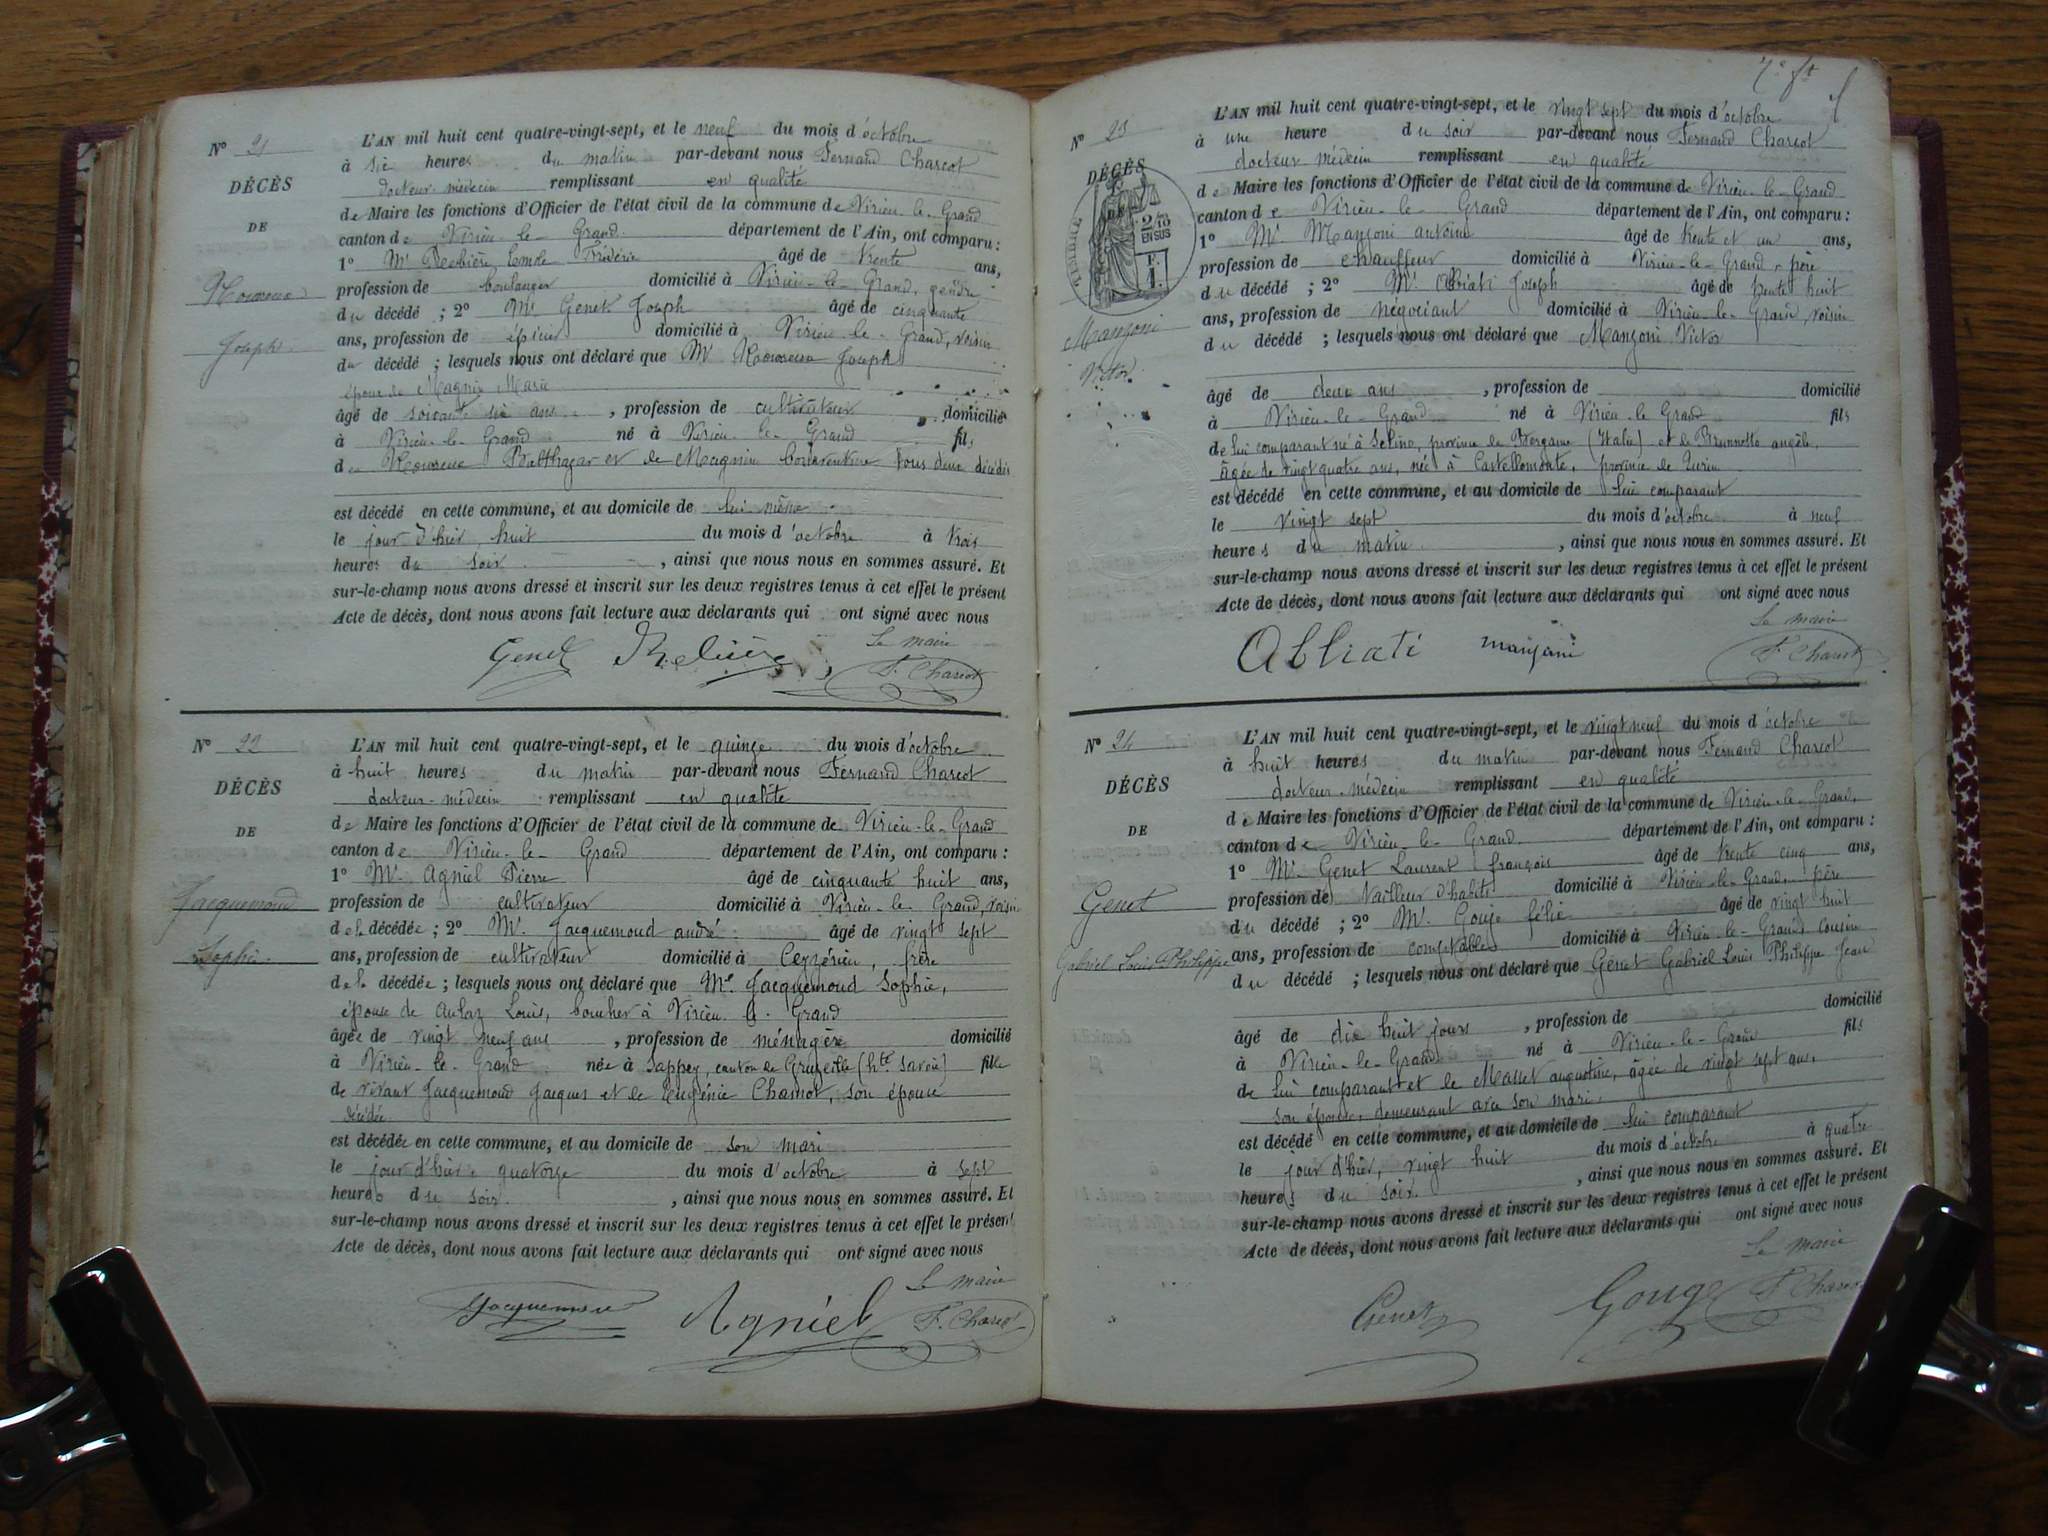 N° 21
DÉCÈS
DE
Joseph
L'AN mil huit cent quatre-vingt-sept, et le neuf du mois d'octobre
à six heures du matin par-devant nous Fernand Charcot
docteur médecin remplissant en qualité
de Maire les fonctions d'Officier de l'état civil de la commune de Virieu-le-Grand
canton de Virieu-le-Grand département de l'Ain, ont comparu :
1° Mr Frédéric âgé de trente ans,
profession de boulanger domicilié à Virieu-le-Grand, gendre
du décédé ; 2° Mr Genet Joseph âgé de cinquante
ans, profession de épicier domicilié à Virieu-le-Grand, voisin
du décédé ; lesquels nous ont déclaré que Mr Joseph
époux de Magnin Marie
âgé de soixante six ans , profession de cultivateur domicilié
à Virieu-le-Grand né à Virieu-le-Grand fils
de Balthazar et de Magnin bonaventure tous deux décédés
est décédé en cette commune, et au domicile de lui même
le jour d'hier huit du mois d'octobre à trois
heures du soir , ainsi que nous nous en sommes assuré. Et
sur-le-champ nous avons dressé et inscrit sur les deux registres tenus à cet effet le présent
Acte de décès, dont nous avons fait lecture aux déclarants qui ont signé avec nous
Le maire
Genet F. Charcot
N° 22
DÉCÈS
DE
Jacquemoud
Sophie
L'AN mil huit cent quatre-vingt-sept, et le quinze du mois d'octobre
à huit heures du matin par-devant nous Fernand Charcot
docteur-médecin remplissant en qualité
de Maire les fonctions d'Officier de l'état civil de la commune de Virieu-le-Grand
canton de Virieu-le-Grand département de l'Ain, ont comparu :
1° Mr Agniel Pierre âgé de cinquante huit ans,
profession de cultivateur domicilié à Virieu-le-Grand, voisin
de la décédée ; 2° Mr Jacquemoud andré âgé de vingt sept
ans, profession de cultivateur domicilié à Ceyzérieu, frère
de la décédée ; lesquels nous ont déclaré que Me Jacquemoud Sophie,
épouse de Louis, boucher à Virieu-le-Grand
âgée de vingt neuf ans , profession de ménagère domicilié
à Virieu-le-Grand née à Sappey, canton de Cruseille (hte Savoie) fille
de vivant Jacquemoud Jacques et de Eugénie Chamot, son épouse
décédée
est décédée en cette commune, et au domicile de son mari
le jour d'hier quatorze du mois d'octobre à sept
heures du soir , ainsi que nous nous en sommes assuré. Et
sur-le-champ nous avons dressé et inscrit sur les deux registres tenus à cet effet le présent
Acte de décès, dont nous avons fait lecture aux déclarants qui ont signé avec nous
Le maire
Jacquemoud Agniel F. Charcot
N° 23
DÉCÈS
TIMBRE
2/10
EN SUS
F.
1.
Manzoni
Victor
L'AN mil huit cent quatre-vingt-sept, et le vingt sept du mois d'octobre
à une heure du soir par-devant nous Fernand Charcot
docteur médecin remplissant en qualité
de Maire les fonctions d'Officier de l'état civil de la commune de Virieu-le-Grand
canton de Virieu-le-Grand département de l'Ain, ont comparu :
1° Mr Manzoni antoine âgé de trente et un ans,
profession de chauffeur domicilié à Virieu-le-Grand, père
du décédé ; 2° Mr Abbiati Joseph âgé de trente huit
ans, profession de négociant domicilié à Virieu-le-Grand, voisin
du décédé ; lesquels nous ont déclaré que Manzoni Victor
âgé de deux ans , profession de domicilié
à Virieu-le-Grand né à Virieu-le-Grand fils
de lui comparant né à Selino, province de Bergame (Italie) et de Brunnetto angèle,
âgée de vingt quatre ans, née à Castellomonte, province de Turin
est décédé en cette commune, et au domicile de lui comparant
le vingt sept du mois d'octobre à neuf
heures du matin , ainsi que nous nous en sommes assuré. Et
sur-le-champ nous avons dressé et inscrit sur les deux registres tenus à cet effet le présent
Acte de décès, dont nous avons fait lecture aux déclarants qui ont signé avec nous
Le maire
Abbiati Manzoni F. Charcot
N° 24
DÉCÈS
DE
Genet
Gabriel Louis Philippe
L'AN mil huit cent quatre-vingt-sept, et le vingt neuf du mois d'octobre
à huit heures du matin par-devant nous Fernand Charcot
docteur-médecin remplissant en qualité
de Maire les fonctions d'Officier de l'état civil de la commune de Virieu-le-Grand,
canton de Virieu-le-Grand département de l'Ain, ont comparu :
1° Mr Genet Laurent françois âgé de trente cinq ans,
profession de tailleur d'habits domicilié à Virieu-le-Grand, père
du décédé ; 2° Mr Gouge félix âgé de vingt huit
ans, profession de comptable domicilié à Virieu-le-Grand cousin
du décédé ; lesquels nous ont déclaré que Genet Gabriel Louis Philippe Jean
âgé de dix huit jours , profession de domicilié
à Virieu-le-Grand né à Virieu-le-Grand fils
de lui comparant et de Masset augustine, âgée de vingt sept ans,
son épouse, demeurant avec son mari,
est décédé en cette commune, et au domicile de lui comparant
le jour d'hier, vingt huit du mois d'octobre à quatre
heures du soir , ainsi que nous nous en sommes assuré. Et
sur-le-champ nous avons dressé et inscrit sur les deux registres tenus à cet effet le présent
Acte de décès, dont nous avons fait lecture aux déclarants qui ont signé avec nous
Le maire
Genet Gouge F. Charcot